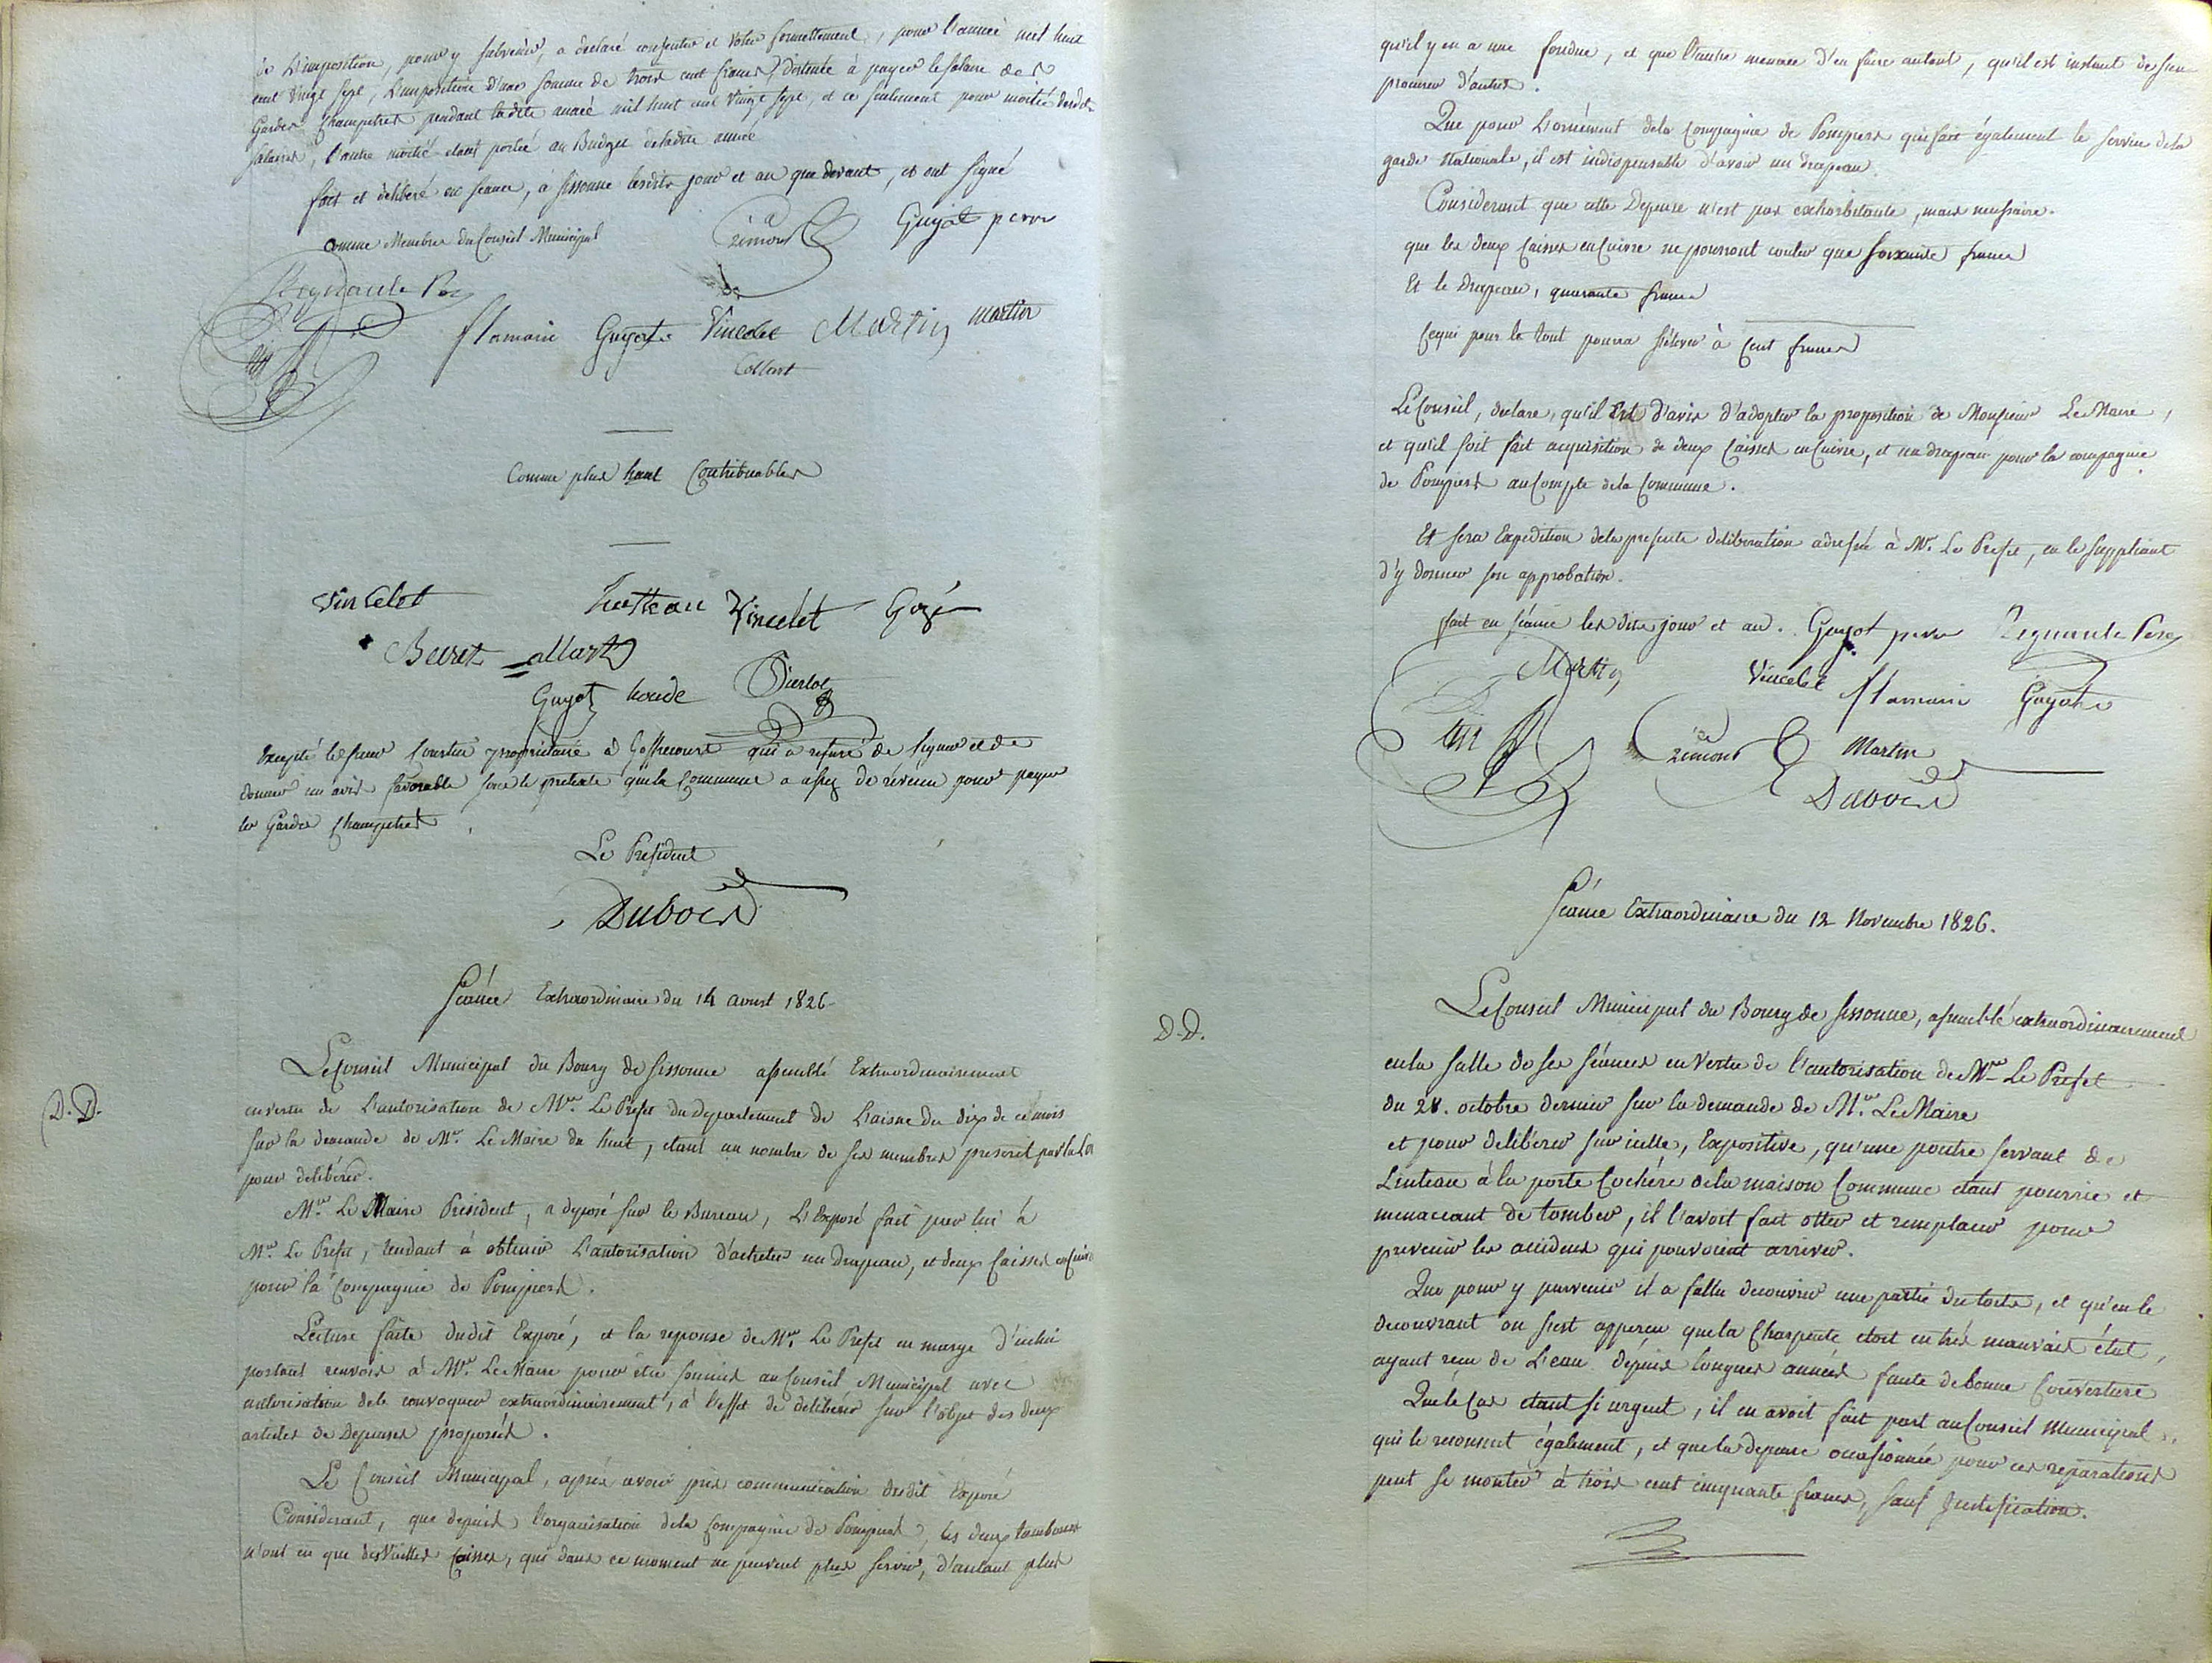 de L'imposition, pour y subvenir, a declaré consentir et voter formellement, pour l'année mil huit
cent vingt sept, L'imposition d'une somme de trois cent francs, destinée à payer le salaire des
Gardes Champetres pendant ladite année mil huit cent vingt sept, et ce seulement pour moitié desdits
salaires, l'autre moitié étant portée au Budget de ladite année
fait et deliberé en séance, à Sissonne lesdits jour et an que devant, et ont signé
comme Membres du Conseil Municipal
Guyot perre
Regnaule
flamain Guyot Vincelet Martin Martin
Collart
Comme plus haut Contribuables
Vincelet Vincelet
Beuret
Guyot
Excepté le sieur proprietaire à Goffrecourt qui a refusé de signer et de
donner un avis favorable sous le pretexte que la Commune a assez de révenu pour payer
les Gardes Champetres
Le President
Dubois
Séance Extraordinaire du 14 aoust 1826
Le Conseil Municipal du Bourg de Sissonne assemblé Extraordinairement
D.D.
en vertu de L'autorisation de Mr. Le Prefet du Departement de L'aisne du dix de ce mois
sur la demande de Mr. Le Maire du huit, étant au nombre de ses membres prescrit par la Loi
pour delibérer.
Mr. Le Maire President, a deposé sur le Bureau, L'Exposé fait par lui à
Mr. Le Prefet, tendant à obtenir L'autorisation d'acheter un drapeau, et deux Caisses en Cuivre
pour la Compagnie de Pompiers.
Lecture faite dudit Exposé, et la reponse de Mr. Le Prefet en marge d'icelui
portant renvoi à Mr. Le Maire pour être soumis au Conseil Municipal avec
autorisation de le convoquer extraordinairement, à l'effet de delibérer sur l'objet des deux
articles de Depenses proposés.
Le Conseil Municipal, après avoir pris communication dudit Exposé
Considerant, que depuis l'organisation de la Compagnie de Pompiers, les deux tambours
n'ont eu que des Vieilles Caisses, qui dans ce moment ne peuvent plus servir, d'autant plus
qu'il y en a une fondue, et que l'autre menace d'en faire autant, qu'il est instant de s'en
procurer d'autres.
Que pour L'ornement de la Compagnie de Pompiers qui fait également le service de la
garde Nationale, il est indispensable d'avoir un drapeau.
Considerant que cette Depense n'est pas exhorbitante, mais necessaire.
que les deux Caisses en Cuivre ne pourront couter que soixante francs
Et le Drapeau, quarante francs
Ce qui pour le tout pourra s'élever à Cent francs
Le Conseil, declare, qu'il Est d'avis d'adopter la proposition de Monsieur Le Maire,
et qu'il soit fait acquisition de deux Caisses en Cuivre, et un drapeau pour la compagnie
de Pompiers au Compte de la Commune.
Et sera Expedition de la presente deliberation adressée à Mr. Le Prefet, en le suppliant
d'y donner son approbation.
fait en séance les dits jour et an. Guyot perre Regnaule
Martin Vincelet flamain Guyot
Martin
Dubois
Séance Extraordinaire du 12 Novembre 1826.
Le Conseil Municipal du Bourg de Sissonne, assemblé extraordinairement
D.D.
en la salle de ses séances en Vertu de l'autorisation de Mr. Le Prefet
du 28. octobre dernier sur la demande de Mr. Le Maire
et pour deliberer sur icelle, Expositive, qu'une poutre servant de
Linteau à la porte Cochère de la maison Commune étant pourrie et
menaceant de tomber, il l'avoit fait otter et remplacer pour
prevenir les accidens qui pouvoient arriver.
Que pour y parvenir il a fallu decouvrir une partie du toits, et qu'en le
decouvrant on s'est apperçu que la Charpente etoit en très mauvais état,
ayant reçu de L'eau depuis longues années faute de bonne Couverture
Que le Cas étant si urgent, il en avoit fait part au Conseil Municipal,
qui le reconnut également, et que la depense occasionnée pour ces reparations
peut se monter à trois cent cinquante francs, sauf justification.